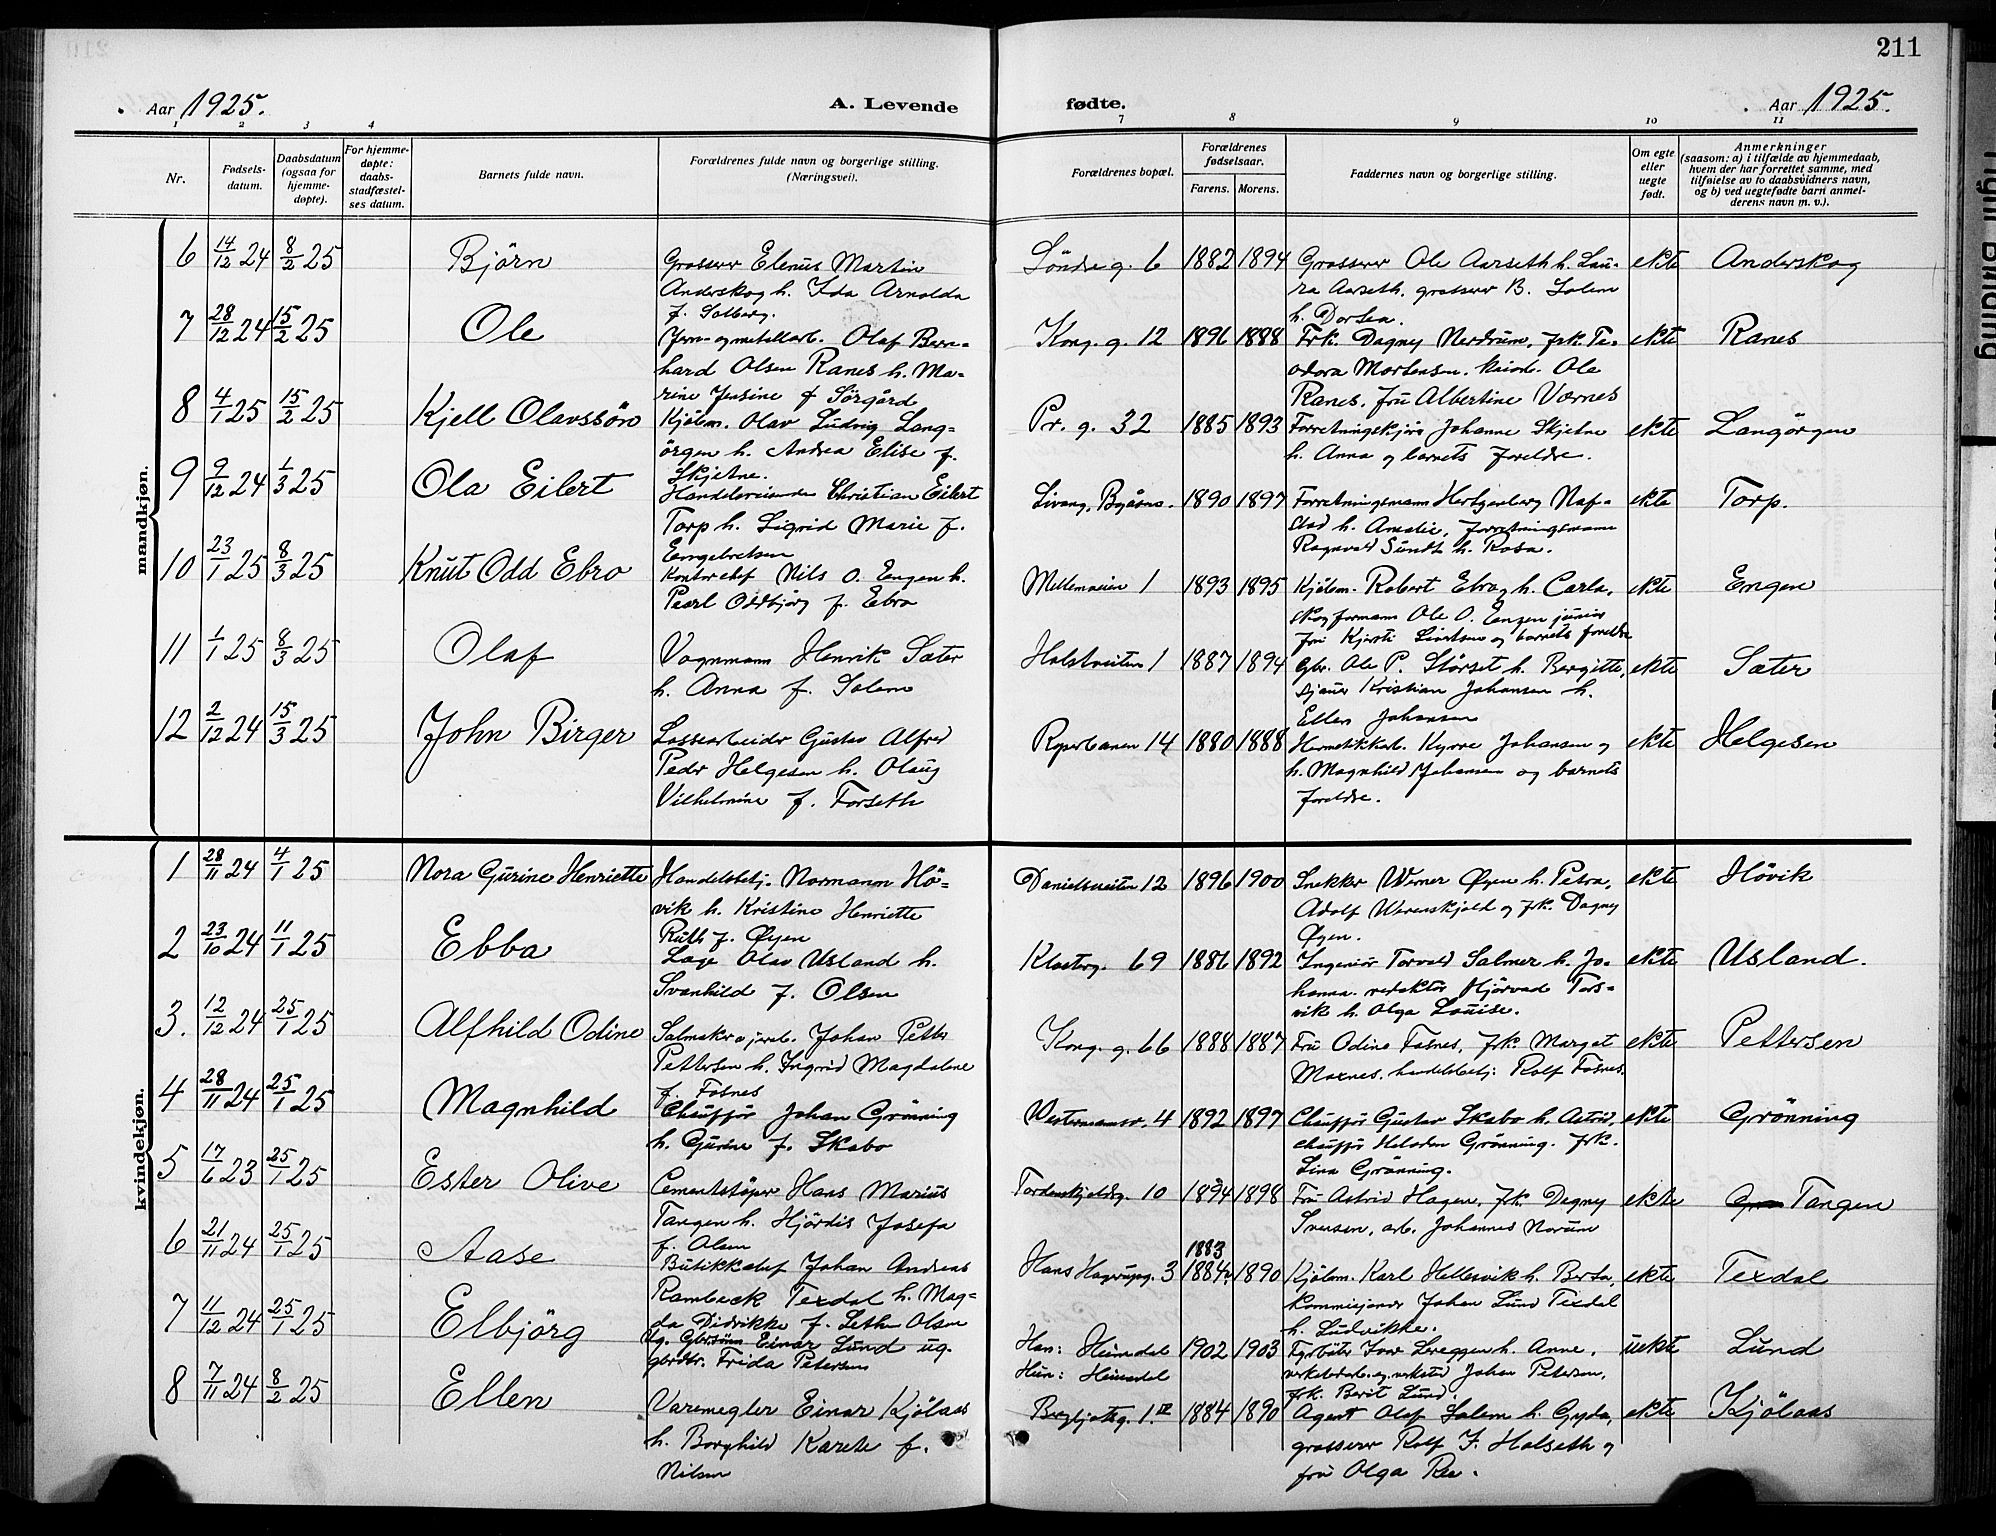 211
Aar 1925. A. Levende fødte. Aar 1925.
1 2 3 4 7 8 9 10 11
Nr.
Fødsels-
datum.
Daabsdatum
(ogsaa for
hjemme-
døpte).
For hjemme-
døpte:
daabs-
stadfæstel-
ses datum.
Barnets fulde navn.
Forældrenes fulde navn og borgerlige stilling.
(Næringsvei).
Forældrenes bopæl.
Forældrenes
fødselsaar.
Farens. Morens.
Faddernes navn og borgerlige stilling.
Om egte
eller
uegte
født.
Anmerkninger
(saasom: a) i tilfælde av hjemmedaab,
hvem der har forrettet samme, med
tilføielse av to daabsvidners navn,
og b) ved uegtefødte barn anmel-
derens navn m. v.).
mandkjøn.
6 14/12 24 8/2 25 Björn
Grosserer Elenus Martin
Anderskog h. Ida Arnolda
f. Solberg.
Söndre g. 6 1882 1894
Grosserer Ole Aarseth h. Lau-
ra Aarseth, grosserer B. Solem
h. Dortea.
ekte Anderskog
7 28/12 24 15/2 25 Ole
Jern- og metallarb. Olaf Bern-
hard Olsen Ranes h. Ma-
rine Jensine f Sörgård
Kong. g. 12 1896 1888
Frk. Dagny Nerdrum, frk. Te-
odora Mortensen. Ole
Ranes, fru Albertine Værnes
ekte Ranes
8 4/1 25 15/2 25 Kjell Olavssön
Kjölm. Olav Ludvig Lang-
örgen h. Andrea Elise f.
Skjetne.
Pr. g. 32 1885 1893
Johanne Skjetne
h. Anna og barnets foreldre.
ekte Langörgen
9 9/12 24 1/3 25 Ola Eilert
Handelsreisende Christian Eilert
Torp h. Sigrid Marie f.
Engebretsen
Byåsen. 1890 1897
Forretningsmann
h. Amalie, forretningsmann
Ragnvald Sundt h. Rosa.
ekte Torp.
10 23/1 25 8/3 25 Knut Odd Ebro
Kontorchef Nils O. Engen h.
Pearl Oddbjörg f. Ebro
Mellemveien 1 1893 1895
Kjölm. Robert Ebro h. Carla,
skogformann Ole O. Engen junior
fru Kjersti og barnets foreldre
ekte Engen
11 1/1 25 8/3 25 Olaf
Vognmann Henrik Sæter
h. Anna f. Solem
Holstveiten 1 1887 1894
Gbr. Ole P. Störset h. Bergitte,
sjauer Kristian Johansen h.
Ellen Johansen
ekte Sæter
12 2/12 24 15/3 25 John Birger
Lossearbeider Gustav Alfred
Peder Helgesen h. Olaug
Vilhelmine f. Forseth
Reperbanen 14 1880 1888
Hermetikkarb. Kyrre Johansen og
h. Magnhild Johansen og barnets
foreldre.
ekte Helgesen
kvindekjøn.
1 28/11 24 4/1 25 Nora Gurine Henriette
Handelsbetj. Normann Hö-
vik h. Kristine Henriette
Ruth f. Öyen
Danielsveiten 12 1896 1900
Snekker Werner Öyen h. Petra,
Adolf Werenskjold og frk. Dagny
Öyen.
ekte Hövik
2 23/10 24 11/1 25 Ebba
Læge Olav Usland h.
Svanhild f. Olsen
Klosterg. 69 1886 1892
Ingeniör Torvald Salmer h. Jo-
hanna. redaktör Hjörvad Tors-
vik h. Olga Louise.
ekte Usland.
3. 12/12 24 25/1 25 Alfhild Odine
Salmaker Johan Petter
Pettersen h. Ingrid Magdalene
f. Fosnes
Kong. g. 66 1888 1887
Fru Odine Fosnes, frk. Margot
Moxnes. handelsbetj: Rolf Fosnes.
ekte Pettersen
4 28/11 24 25/1 25 Magnhild
Chaufför Johan Grönning
h. Gurine f. Skabo
Westermannsv. 4 1892 1897
Chaufför Gustav Skabo h. Astrid,
chaufför Halvdan Grönning. frk.
Lina Grönning.
ekte Grönning
5 17/6 23 25/1 25 Ester Olive
Cementstöper Hans Marius
Tangen h. Hjördis Josefa
f. Olsen
Tordenskjoldsg. 10 1894 1898
Fru Astrid Hagen, frk. Dagny
Iversen, arb. Johannes Norum
ekte Tangen
6 21/11 24 25/1 25 Aase
Butikkchef Johan Andreas
Rambeck Texdal h. Mag-
da Didrikke f. Sether Olsen
Hans Hagerupsg. 3 1883 1884 1890
Kjölm. Karl Hellesvik h. Berta,
kommisjonær Johan Lund Texdal
h. Ludvikke.
ekte Texdal
7 11/12 24 25/1 25 Elbjörg
Ug. Gbr.sönn Einar Lund ug.
gbrdtr. Frida Petersen
Han: Heimdal
Hun: Heimdal
1902 1903
Fyrböter Ivar Lereggen h. Anne,
Johan Petersen,
frk. Berit Lund.
uekte Lund
8 7/11 24 8/2 25 Ellen
Varemegler Einar Kjölaas
h. Borghild Karete f.
Nilsen
Bergljotsg. 1.IV 1884 1890
Agent Olaf Solem h. Gyda,
grosserer Rolf F. Halseth og
fru Olga Ree.
ekte Kjölaas